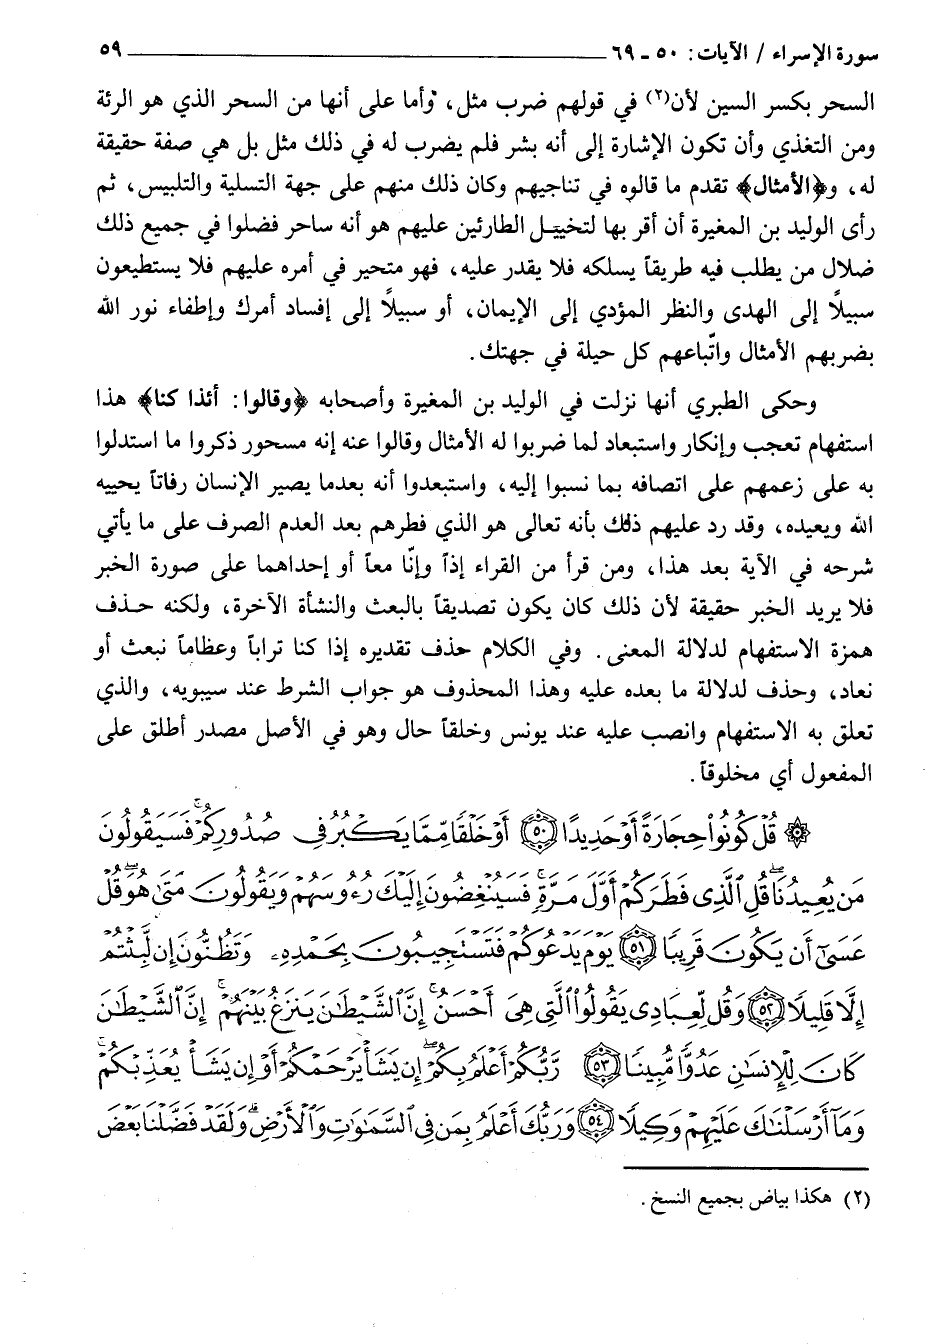 سورة الإسراء / الآيات: ٥٠ ـ ٦٩ ٥٩
السحر بكسر السين لأن(٢) في قولهم ضرب مثل، وأما على أنها من السحر الذي هو الرئة
ومن التغذي وأن تكون الإشارة إلى أنه بشر فلم يضرب له في ذلك مثل بل هي صفة حقيقة
له، و﴿الأمثال﴾ تقدم ما قالوه في تناجيهم وكان ذلك منهم على جهة التسلية والتلبيس، ثم
رأى الوليد بن المغيرة أن أقر بها لتخييل الطارئين عليهم هو أنه ساحر فضلوا في جميع ذلك
ضلال من يطلب فيه طريقاً يسلكه فلا يقدر عليه، فهو متحير في أمره عليهم فلا يستطيعون
سبيلاً إلى الهدى والنظر المؤدي إلى الإيمان، أو سبيلاً إلى إفساد أمرك وإطفاء نور الله
بضربهم الأمثال واتّباعهم كل حيلة في جهتك.
وحكى الطبري أنها نزلت في الوليد بن المغيرة وأصحابه ﴿وقالوا: أئذا كنا﴾ هذا
استفهام تعجب وإنكار واستبعاد لما ضربوا له الأمثال وقالوا عنه إنه مسحور ذكروا ما استدلوا
به على زعمهم على اتصافه بما نسبوا إليه، واستبعدوا أنه بعدما يصير الإنسان رفاتاً يحييه
الله ويعيده، وقد رد عليهم ذلك بأنه تعالى هو الذي فطرهم بعد العدم الصرف على ما يأتي
شرحه في الآية بعد هذا، ومن قرأ من القراء إذاً وإنّا معاً أو إحداهما على صورة الخبر
فلا يريد الخبر حقيقة لأن ذلك كان يكون تصديقاً بالبعث والنشأة الآخرة، ولكنه حذف
همزة الاستفهام لدلالة المعنى. وفي الكلام حذف تقديره إذا كنا تراباً وعظاماً نبعث أو
نعاد، وحذف لدلالة ما بعده عليه وهذا المحذوف هو جواب الشرط عند سيبويه، والذي
تعلق به الاستفهام وانصب عليه عند يونس وخلقاً حال وهو في الأصل مصدر أطلق على
المفعول أي مخلوقاً.
۞ قُلْ كُونُوا۟ حِجَارَةً أَوْ حَدِيدًا ٥٠ أَوْ خَلْقًا مِّمَّا يَكْبُرُ فِى صُدُورِكُمْ ۚ فَسَيَقُولُونَ
مَن يُعِيدُنَا ۖ قُلِ ٱلَّذِى فَطَرَكُمْ أَوَّلَ مَرَّةٍ ۚ فَسَيُنْغِضُونَ إِلَيْكَ رُءُوسَهُمْ وَيَقُولُونَ مَتَىٰ هُوَ ۖ قُلْ
عَسَىٰٓ أَن يَكُونَ قَرِيبًا ٥١ يَوْمَ يَدْعُوكُمْ فَتَسْتَجِيبُونَ بِحَمْدِهِۦ وَتَظُنُّونَ إِن لَّبِثْتُمْ
إِلَّا قَلِيلًا ٥٢ وَقُل لِّعِبَادِى يَقُولُوا۟ ٱلَّتِى هِىَ أَحْسَنُ ۚ إِنَّ ٱلشَّيْطَٰنَ يَنزَغُ بَيْنَهُمْ ۚ إِنَّ ٱلشَّيْطَٰنَ
كَانَ لِلْإِنسَٰنِ عَدُوًّا مُّبِينًا ٥٣ رَّبُّكُمْ أَعْلَمُ بِكُمْ ۖ إِن يَشَأْ يَرْحَمْكُمْ أَوْ إِن يَشَأْ يُعَذِّبْكُمْ ۚ
وَمَآ أَرْسَلْنَٰكَ عَلَيْهِمْ وَكِيلًا ٥٤ وَرَبُّكَ أَعْلَمُ بِمَن فِى ٱلسَّمَٰوَٰتِ وَٱلْأَرْضِ ۗ وَلَقَدْ فَضَّلْنَا بَعْضَ
(٢) هكذا بياض بجميع النسخ.